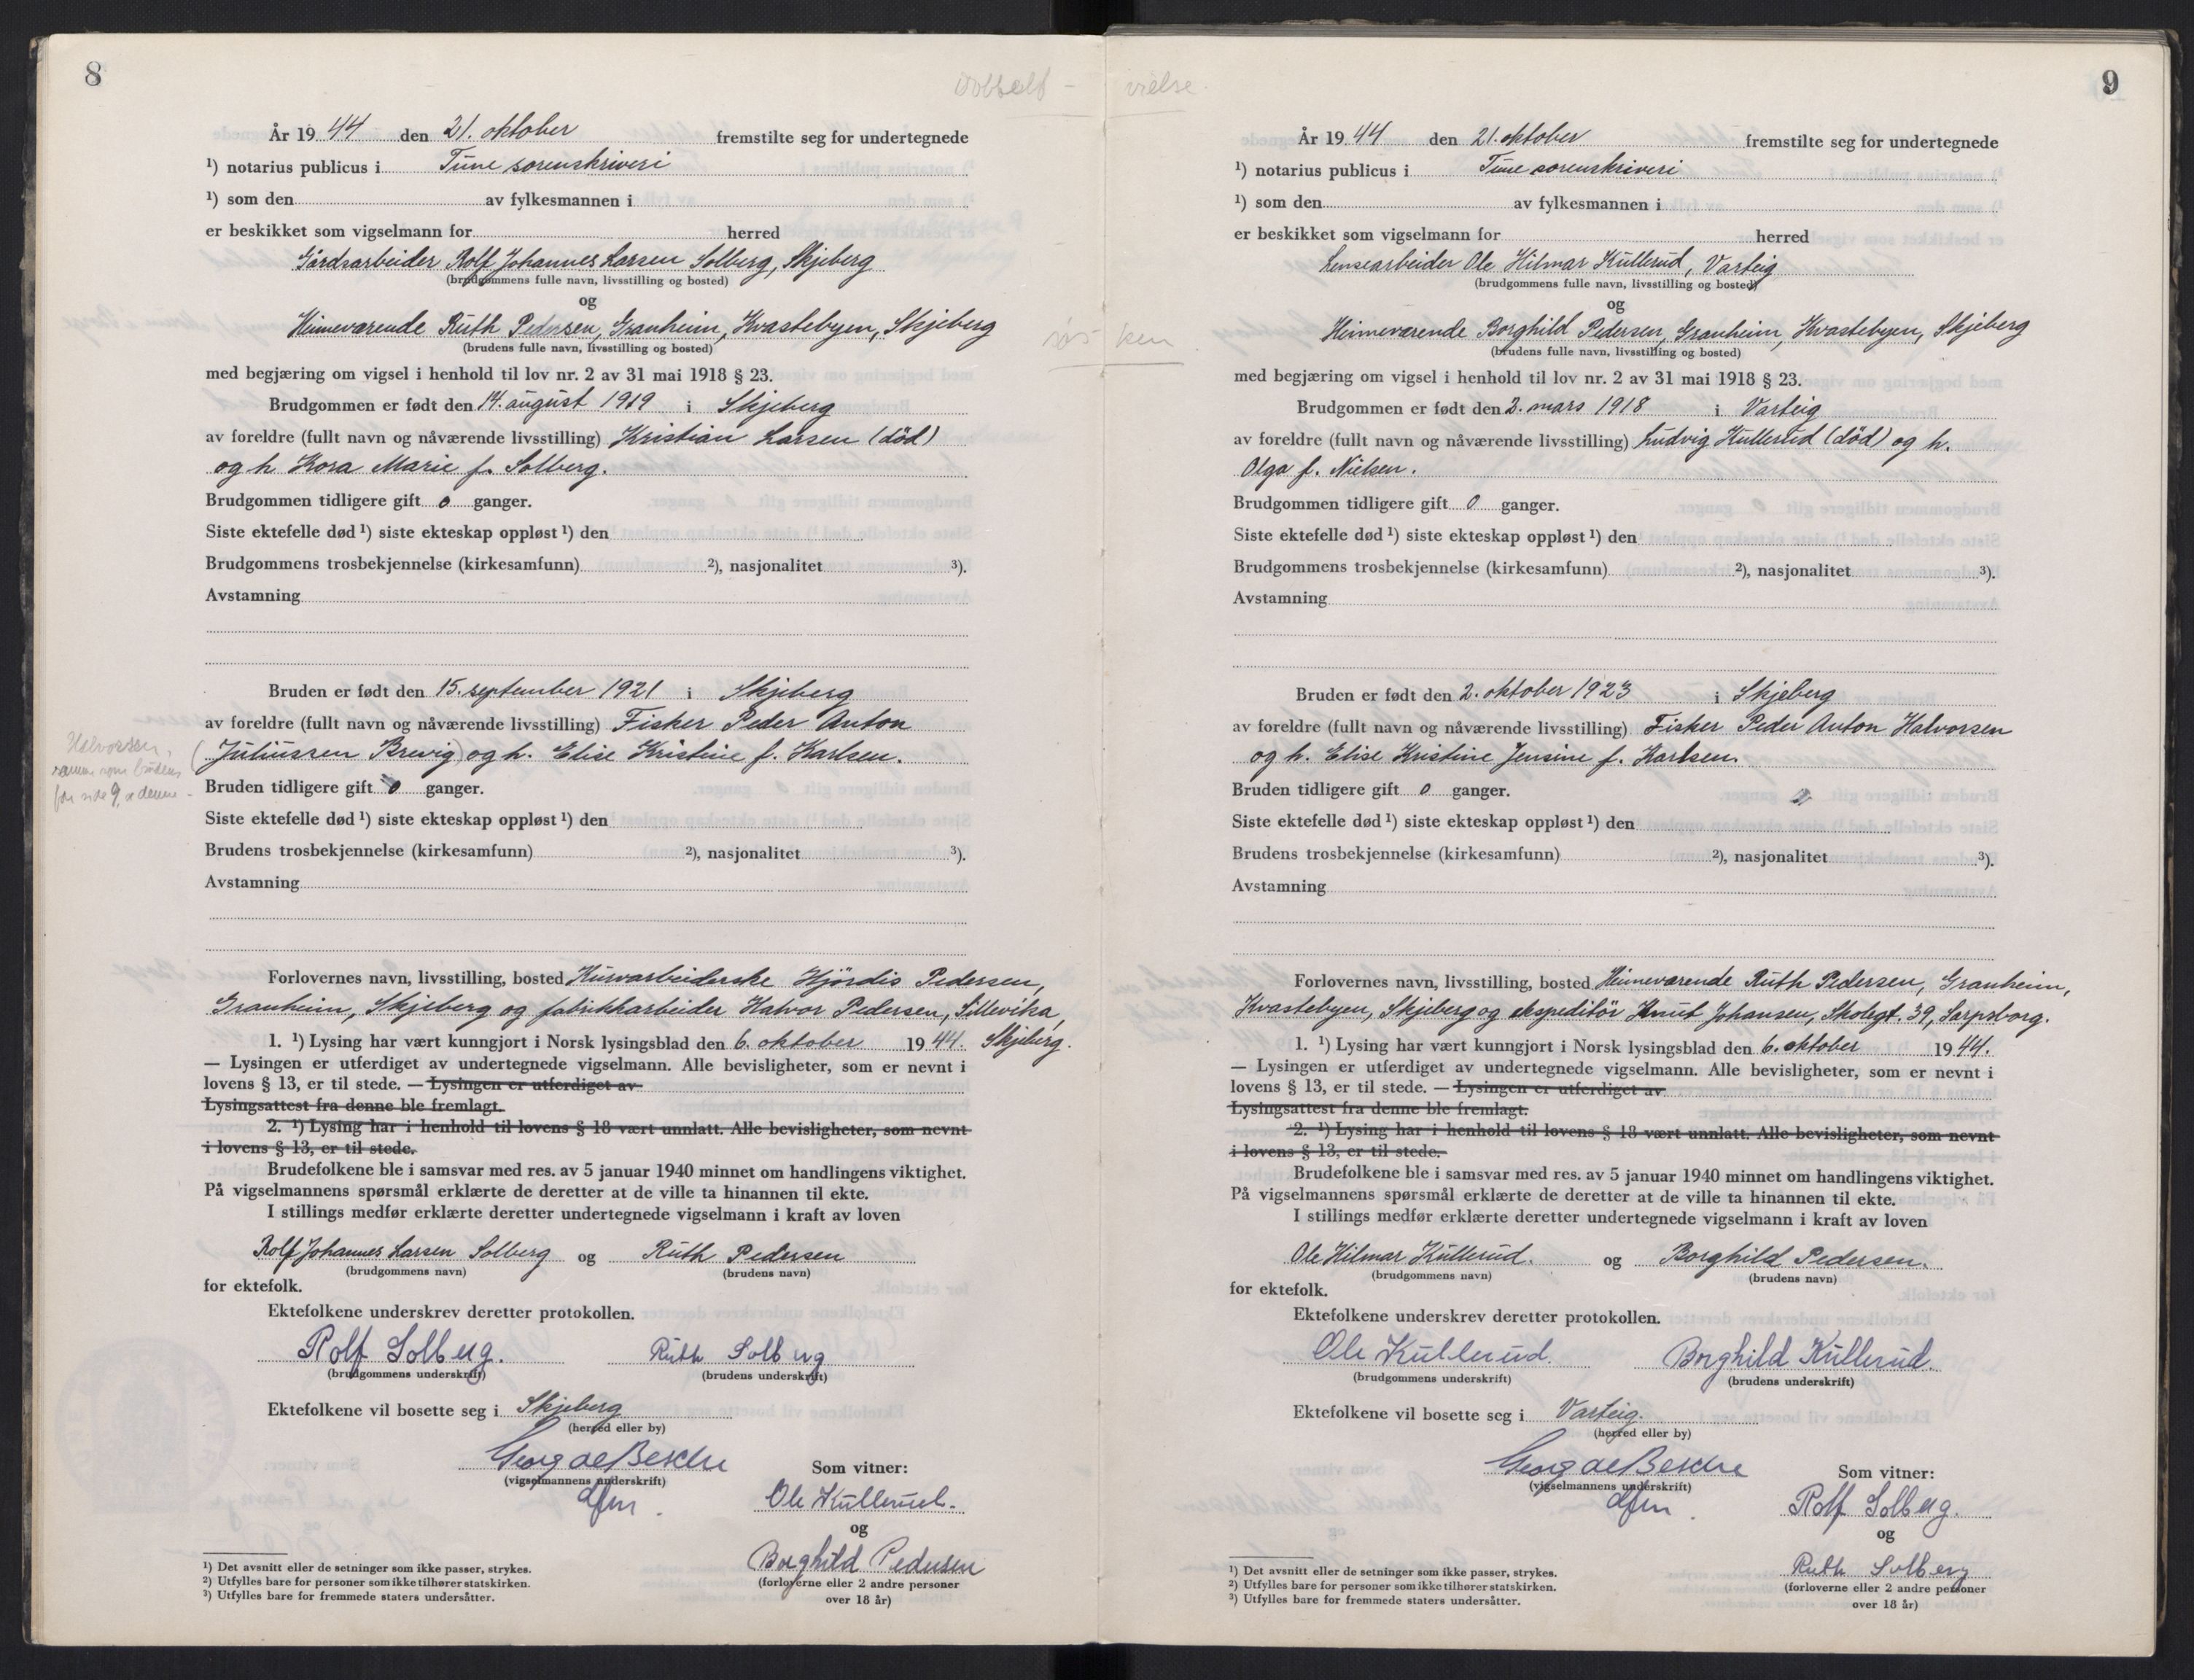 8
dobbelt -
År 1944 den 21. oktober fremstilte seg for undertegnede
¹) notarius publicus i Tune sorenskriveri
¹) som den av fylkesmannen i
er beskikket som vigselmann for herred
Gårdsarbeider Rolf Johannes Larsen Solberg, Skjeberg
(brudgommens fulle navn, livsstilling og bosted)
og
Heimeværende Ruth Pedersen, Granheim, Kvastebyen, Skjeberg
(brudens fulle navn, livsstilling og bosted)
med begjæring om vigsel i henhold til lov nr. 2 av 31 mai 1918 § 23.
Brudgommen er født den 14. august 1919 i Skjeberg
av foreldre (fullt navn og nåværende livsstilling) Kristian Larsen (död)
og h. Kora Marie f. Solberg.
Brudgommen tidligere gift 0 ganger.
Siste ektefelle død ¹) siste ekteskap oppløst ¹) den
Brudgommens trosbekjennelse (kirkesamfunn) ²), nasjonalitet ³).
Avstamning
Bruden er født den 15. september 1921 i Skjeberg
av foreldre (fullt navn og nåværende livsstilling) Fisker Peder Anton
(Juliussen Brevig) og h. Elise Kristine f. Karlsen.
Halvorssen,
samme som brudens
far side 9, er denne -
Bruden tidligere gift 0 ganger.
Siste ektefelle død ¹) siste ekteskap oppløst ¹) den
Brudens trosbekjennelse (kirkesamfunn) ²), nasjonalitet ³).
Avstamning
Forlovernes navn, livsstilling, bosted Husarbeiderske Hjördis Pedersen,
Granheim, Skjeberg og fabrikkarbeider Halvor Pedersen, Sillevika,
Skjeberg.
1. ¹) Lysing har vært kunngjort i Norsk lysingsblad den 6. oktober 1944.
— Lysingen er utferdiget av undertegnede vigselmann. Alle bevisligheter, som er nevnt i
lovens § 13, er til stede. — Lysingen er utferdiget av
Lysingsattest fra denne ble fremlagt.
2. ¹) Lysing har i henhold til lovens § 18 vært unnlatt. Alle bevisligheter, som nevnt
i lovens § 13, er til stede.
Brudefolkene ble i samsvar med res. av 5 januar 1940 minnet om handlingens viktighet.
På vigselmannens spørsmål erklærte de deretter at de ville ta hinannen til ekte.
I stillings medfør erklærte deretter undertegnede vigselmann i kraft av loven
Rolf Johannes Larsen Solberg og Ruth Pedersen
(brudgommens navn) (brudens navn)
for ektefolk.
Ektefolkene underskrev deretter protokollen.
Rolf Solberg. Ruth Solberg
(brudgommens underskrift) (brudens underskrift)
Ektefolkene vil bosette seg i Skjeberg
(herred eller by)
Georg de Besche
(vigselmannens underskrift)
dfm.
Som vitner:
Ole Kullerud.
og
Borghild Pedersen
(forloverne eller 2 andre personer
over 18 år)
¹) Det avsnitt eller de setninger som ikke passer, strykes.
²) Utfylles bare for personer som ikke tilhører statskirken.
³) Utfylles bare for fremmede staters undersåtter.
9
vielse.
År 1944 den 21. oktober fremstilte seg for undertegnede
¹) notarius publicus i Tune sorenskriveri
¹) som den av fylkesmannen i
er beskikket som vigselmann for herred
Lensearbeider Ole Hilmar Kullerud, Varteig
(brudgommens fulle navn, livsstilling og bosted)
og
Heimeværende Borghild Pedersen, Granheim, Kvastebyen, Skjeberg
(brudens fulle navn, livsstilling og bosted)
søs- ken
med begjæring om vigsel i henhold til lov nr. 2 av 31 mai 1918 § 23.
Brudgommen er født den 2. mars 1918 i Varteig
av foreldre (fullt navn og nåværende livsstilling) Ludvig Kullerud (död) og h.
Olga f. Nielsen.
Brudgommen tidligere gift 0 ganger.
Siste ektefelle død ¹) siste ekteskap oppløst ¹) den
Brudgommens trosbekjennelse (kirkesamfunn) ²), nasjonalitet ³).
Avstamning
Bruden er født den 2. oktober 1923 i Skjeberg
av foreldre (fullt navn og nåværende livsstilling) Fisker Peder Anton Halvorsen
og h. Elise Kristine Jensine f. Karlsen.
Bruden tidligere gift 0 ganger.
Siste ektefelle død ¹) siste ekteskap oppløst ¹) den
Brudens trosbekjennelse (kirkesamfunn) ²), nasjonalitet ³).
Avstamning
Forlovernes navn, livsstilling, bosted Heimeværende Ruth Pedersen, Granheim,
Kvastebyen, Skjeberg og ekspeditör Knut Johansen, Skolegt. 39, Sarpsborg.
1. ¹) Lysing har vært kunngjort i Norsk lysingsblad den 6. oktober 1944.
— Lysingen er utferdiget av undertegnede vigselmann. Alle bevisligheter, som er nevnt i
lovens § 13, er til stede. — Lysingen er utferdiget av
Lysingsattest fra denne ble fremlagt.
2. ¹) Lysing har i henhold til lovens § 18 vært unnlatt. Alle bevisligheter, som nevnt
i lovens § 13, er til stede.
Brudefolkene ble i samsvar med res. av 5 januar 1940 minnet om handlingens viktighet.
På vigselmannens spørsmål erklærte de deretter at de ville ta hinannen til ekte.
I stillings medfør erklærte deretter undertegnede vigselmann i kraft av loven
Ole Hilmar Kullerud. og Borghild Pedersen.
(brudgommens navn) (brudens navn)
for ektefolk.
Ektefolkene underskrev deretter protokollen.
Ole Kullerud. Borghild Kullerud.
(brudgommens underskrift) (brudens underskrift)
Ektefolkene vil bosette seg i Varteig.
(herred eller by)
Georg de Besche
(vigselmannens underskrift)
dfm.
Som vitner:
Rolf Solberg.
og
Ruth Solberg
(forloverne eller 2 andre personer
over 18 år)
¹) Det avsnitt eller de setninger som ikke passer, strykes.
²) Utfylles bare for personer som ikke tilhører statskirken.
³) Utfylles bare for fremmede staters undersåtter.